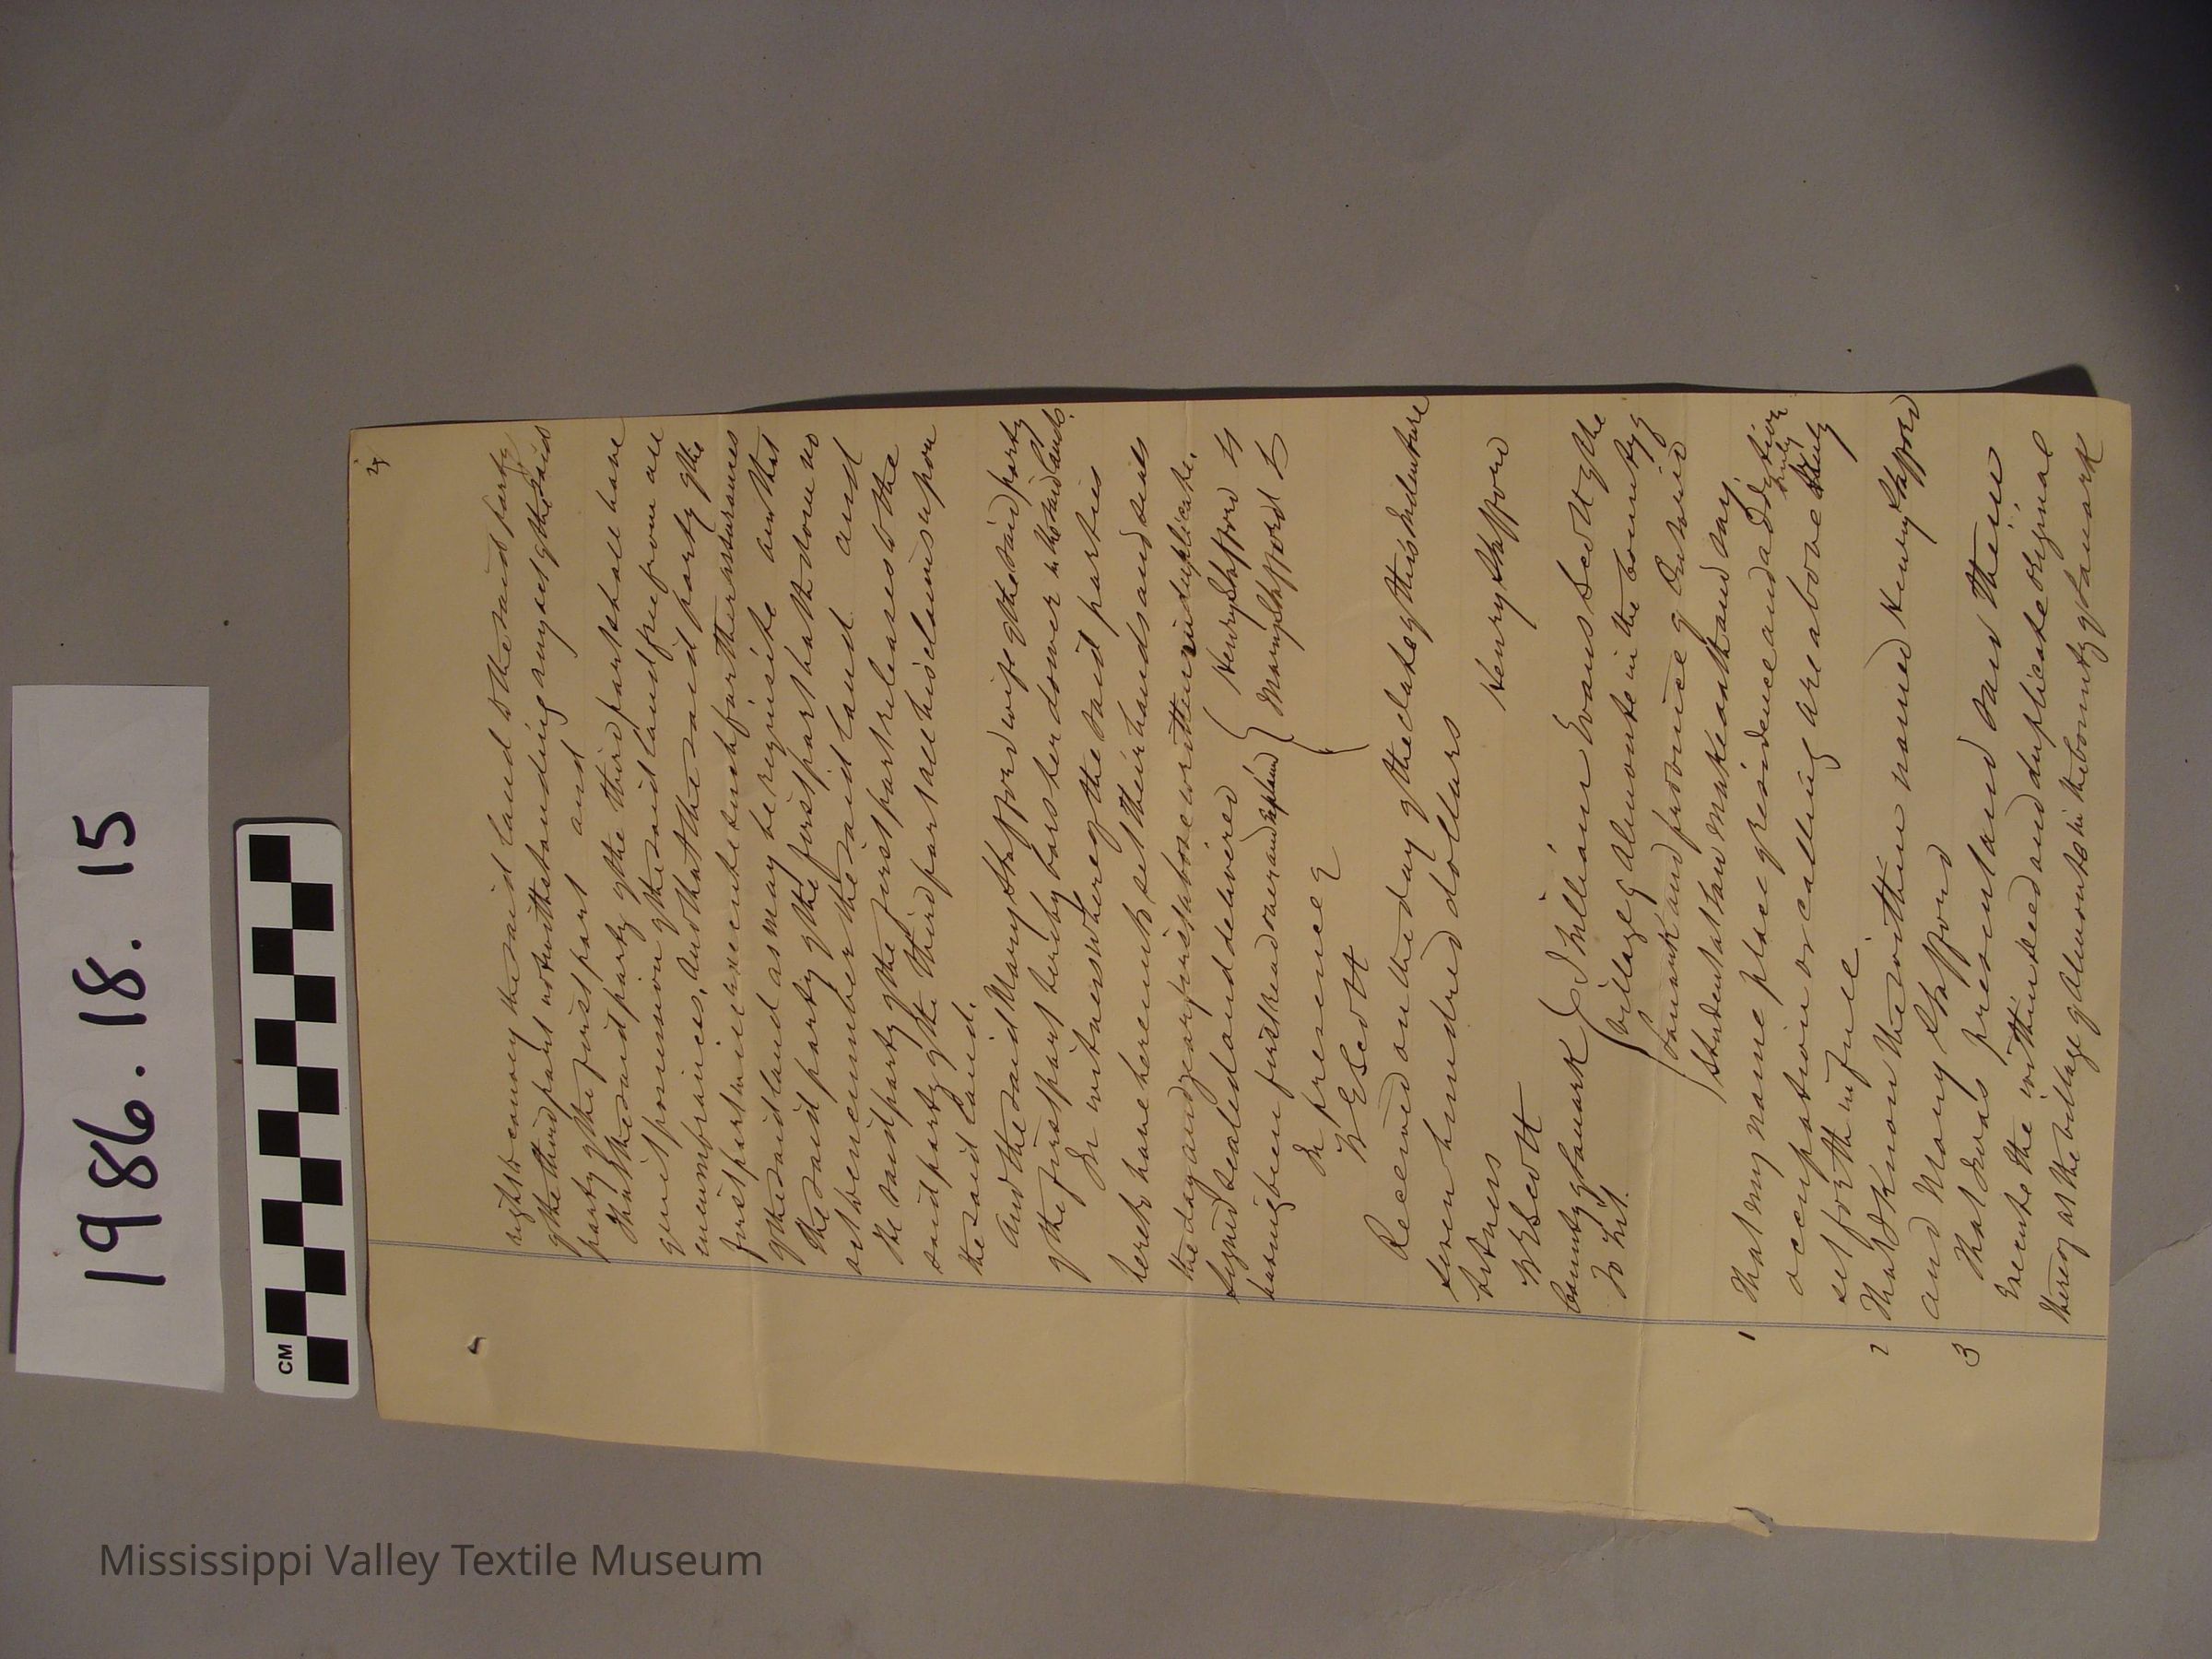 1986.18.15
CM
Mississippi Valley Textile Museum
2
right to convey the said land to the said party
of the third part notwithstanding any act of the said
party of the first part and
That the said party of the third part shall have
quiet possession of the said land free from all
encumbrances. And that the said party of the
first part will execute such further assurances
of the said land as may be requisite and that
the said party of the first part hath done no
act to encumber the said land and
the said party of the first part releases to the
said party of the third part all his claims upon
the said land.
And the said Mary Shefford wife of the said party
of the first part hereby bars her dower in the said lands.
In witness whereof the said parties
hereto have hereunto set their hands and seals
the day and year first above written in duplicate.
Signed sealed and delivered { Henry Shefford LS
having been first read over and explained { Mary Shefford LS
In presence of
W E Scott
Received on the day of the date of this Indenture
seven hundred dollars
Witness Henry Shefford
W E Scott
County of Lanark { I William Evans Scott of the
To Wit. village of Almonte in the County of
Lanark and province of Ontario
Student at law make oath and say
1 That my name place of residence and addition
occupation or calling are above truly
set forth in full.
2 That I know the within named Henry Shefford
and Mary Shefford
3 That I was present and saw them
Execute the within deed and duplicate original
thereof at the village of Almonte in the County of Lanark